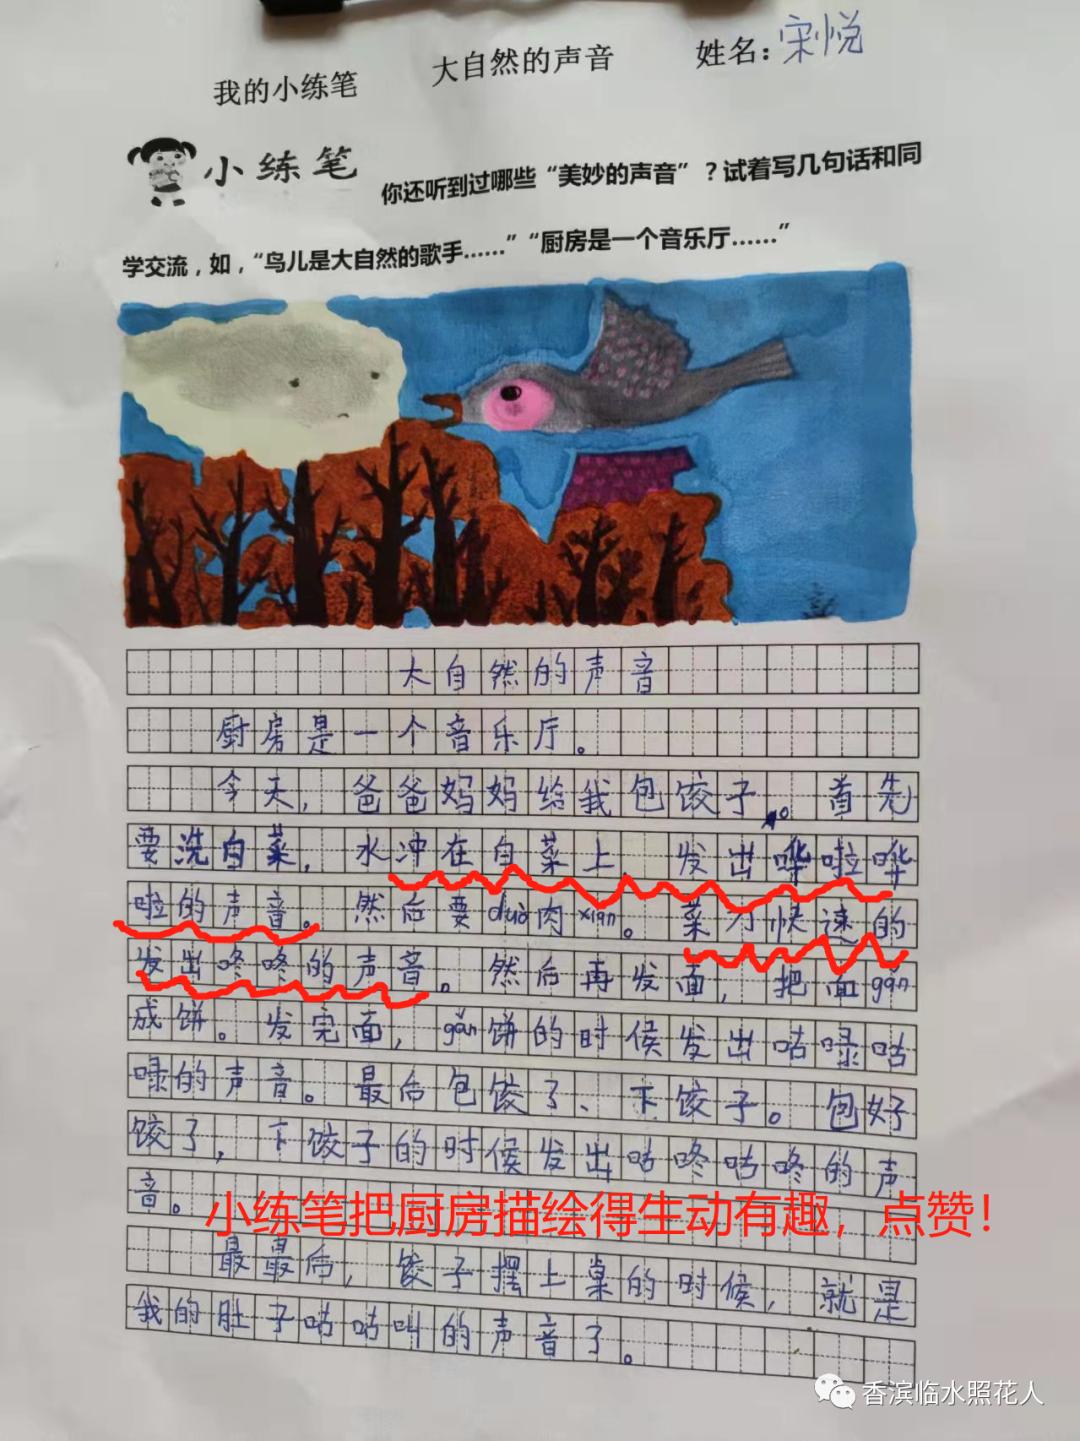 我的小练笔 大自然的声音 姓名：宋悦
小练笔
你还听到过哪些“美妙的声音”？试着写几句话和同
学交流，如，“鸟儿是大自然的歌手……”“厨房是一个音乐厅……”
大自然的声音
厨房是一个音乐厅。
今天，爸爸妈妈给我包饺子。首先
要洗白菜，水冲在白菜上，发出哗啦哗
啦的声音。然后要duò肉xiàn。菜刀快速的
发出咚咚的声音。然后再发面，把面gǎn
成饼。发完面，gǎn饼的时候发出咕噜咕
噜的声音。最后包饺了、下饺子。包好
饺了，下饺子的时候发出咕咚咕咚的声
音。
小练笔把厨房描绘得生动有趣，点赞！
最最后，饺子摆上桌的时候，就是
我的肚子咕咕叫的声音了。
香滨临水照花人